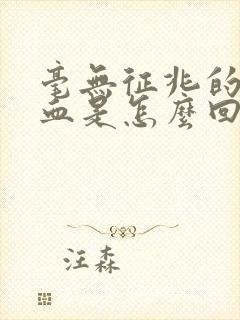 毫無征兆的
血是怎麼回
汪森